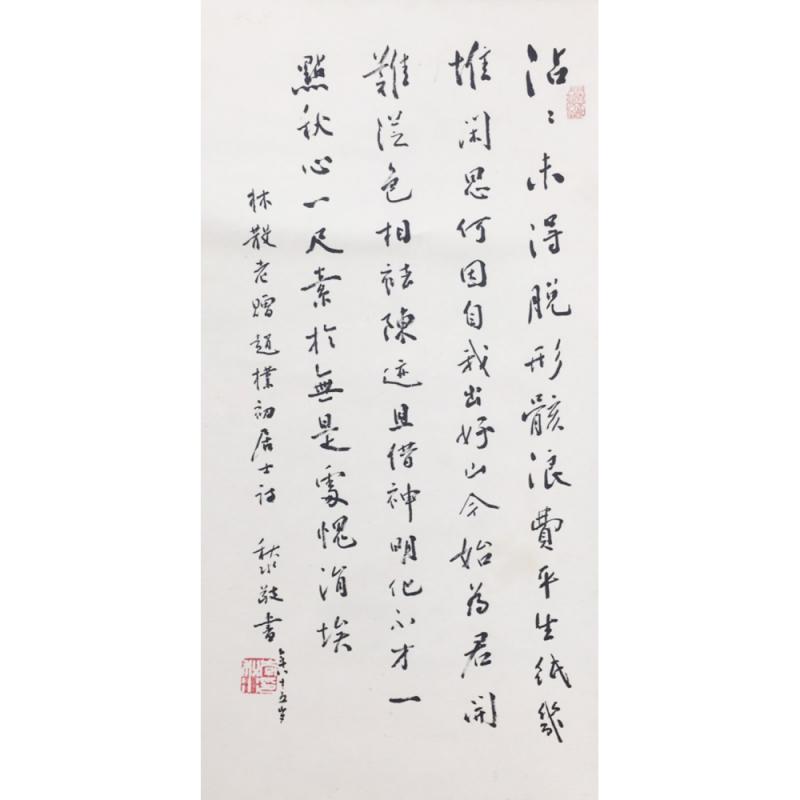 沾〻未得脱形骸浪費平生紙幾
堆閑思何因自我出好山今始為君開
難從色相祛陳迹且借神明化不才一
點秋心一尺素於無是處愧涓埃
林散老贈趙樸初居士詩 秋水敬書
年六十五岁